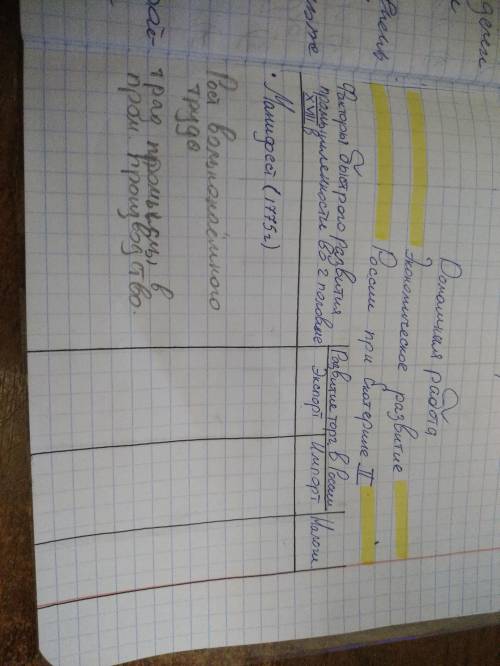 Домашняя работа
Экономическое развитие
России при Екатерине II
Факторы быстрого развития
промышленности во 2 половине
XVIII в
Развитие торг. в России
Экспорт
Импорт
Налоги
• Манифест (1775 г)
Рост вольнонаёмного
труда
пром производство.